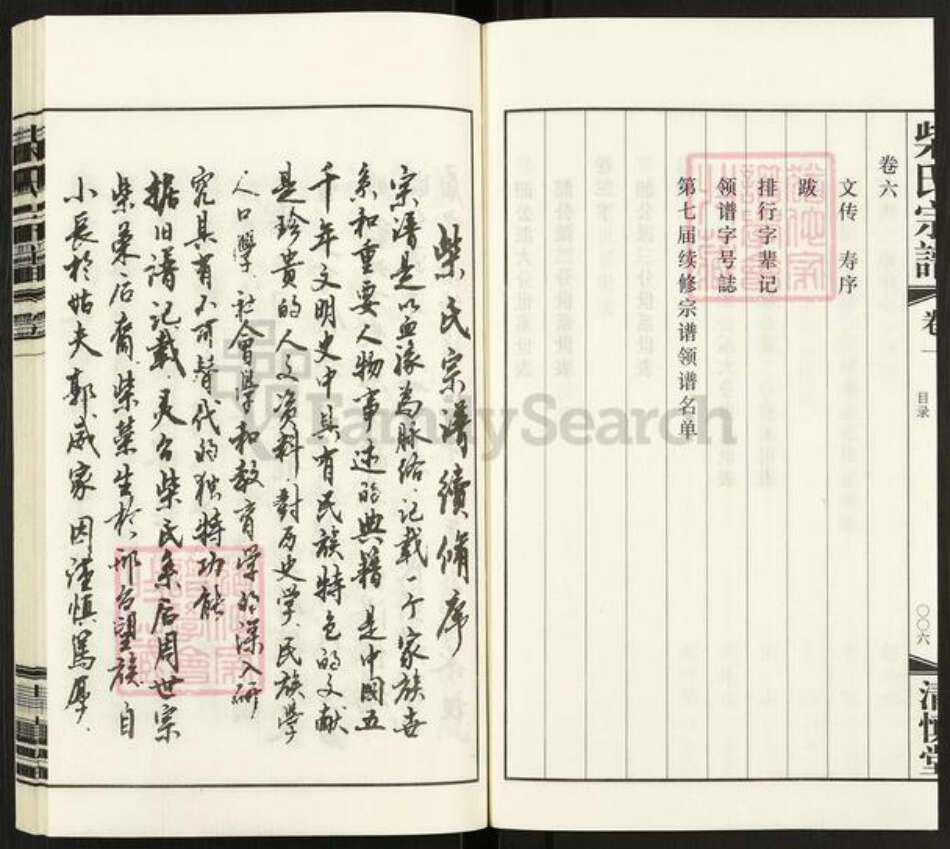 柴氏宗譜 卷一 目录 〇〇六 清慎堂
卷六
文传 寿序
跋
排行字辈记
领谱字号誌
第七届续修宗谱领谱名单
柴氏宗谱續修序
宗谱是以血缘为脉络、记载一个家族世
系和重要人物事迹的典籍 是中国五
千年文明史中具有民族特色的文献
是珍贵的人文资料 对历史学、民族学
人口學、社會學和教育学的深入研
究具有不可替代的独特功能
据旧谱记载 灵台柴氏系后周世宗
柴荣后裔 柴荣生於邢台望族 自
小長於姑夫郭威家 因谨慎篤厚、
FamilySearch